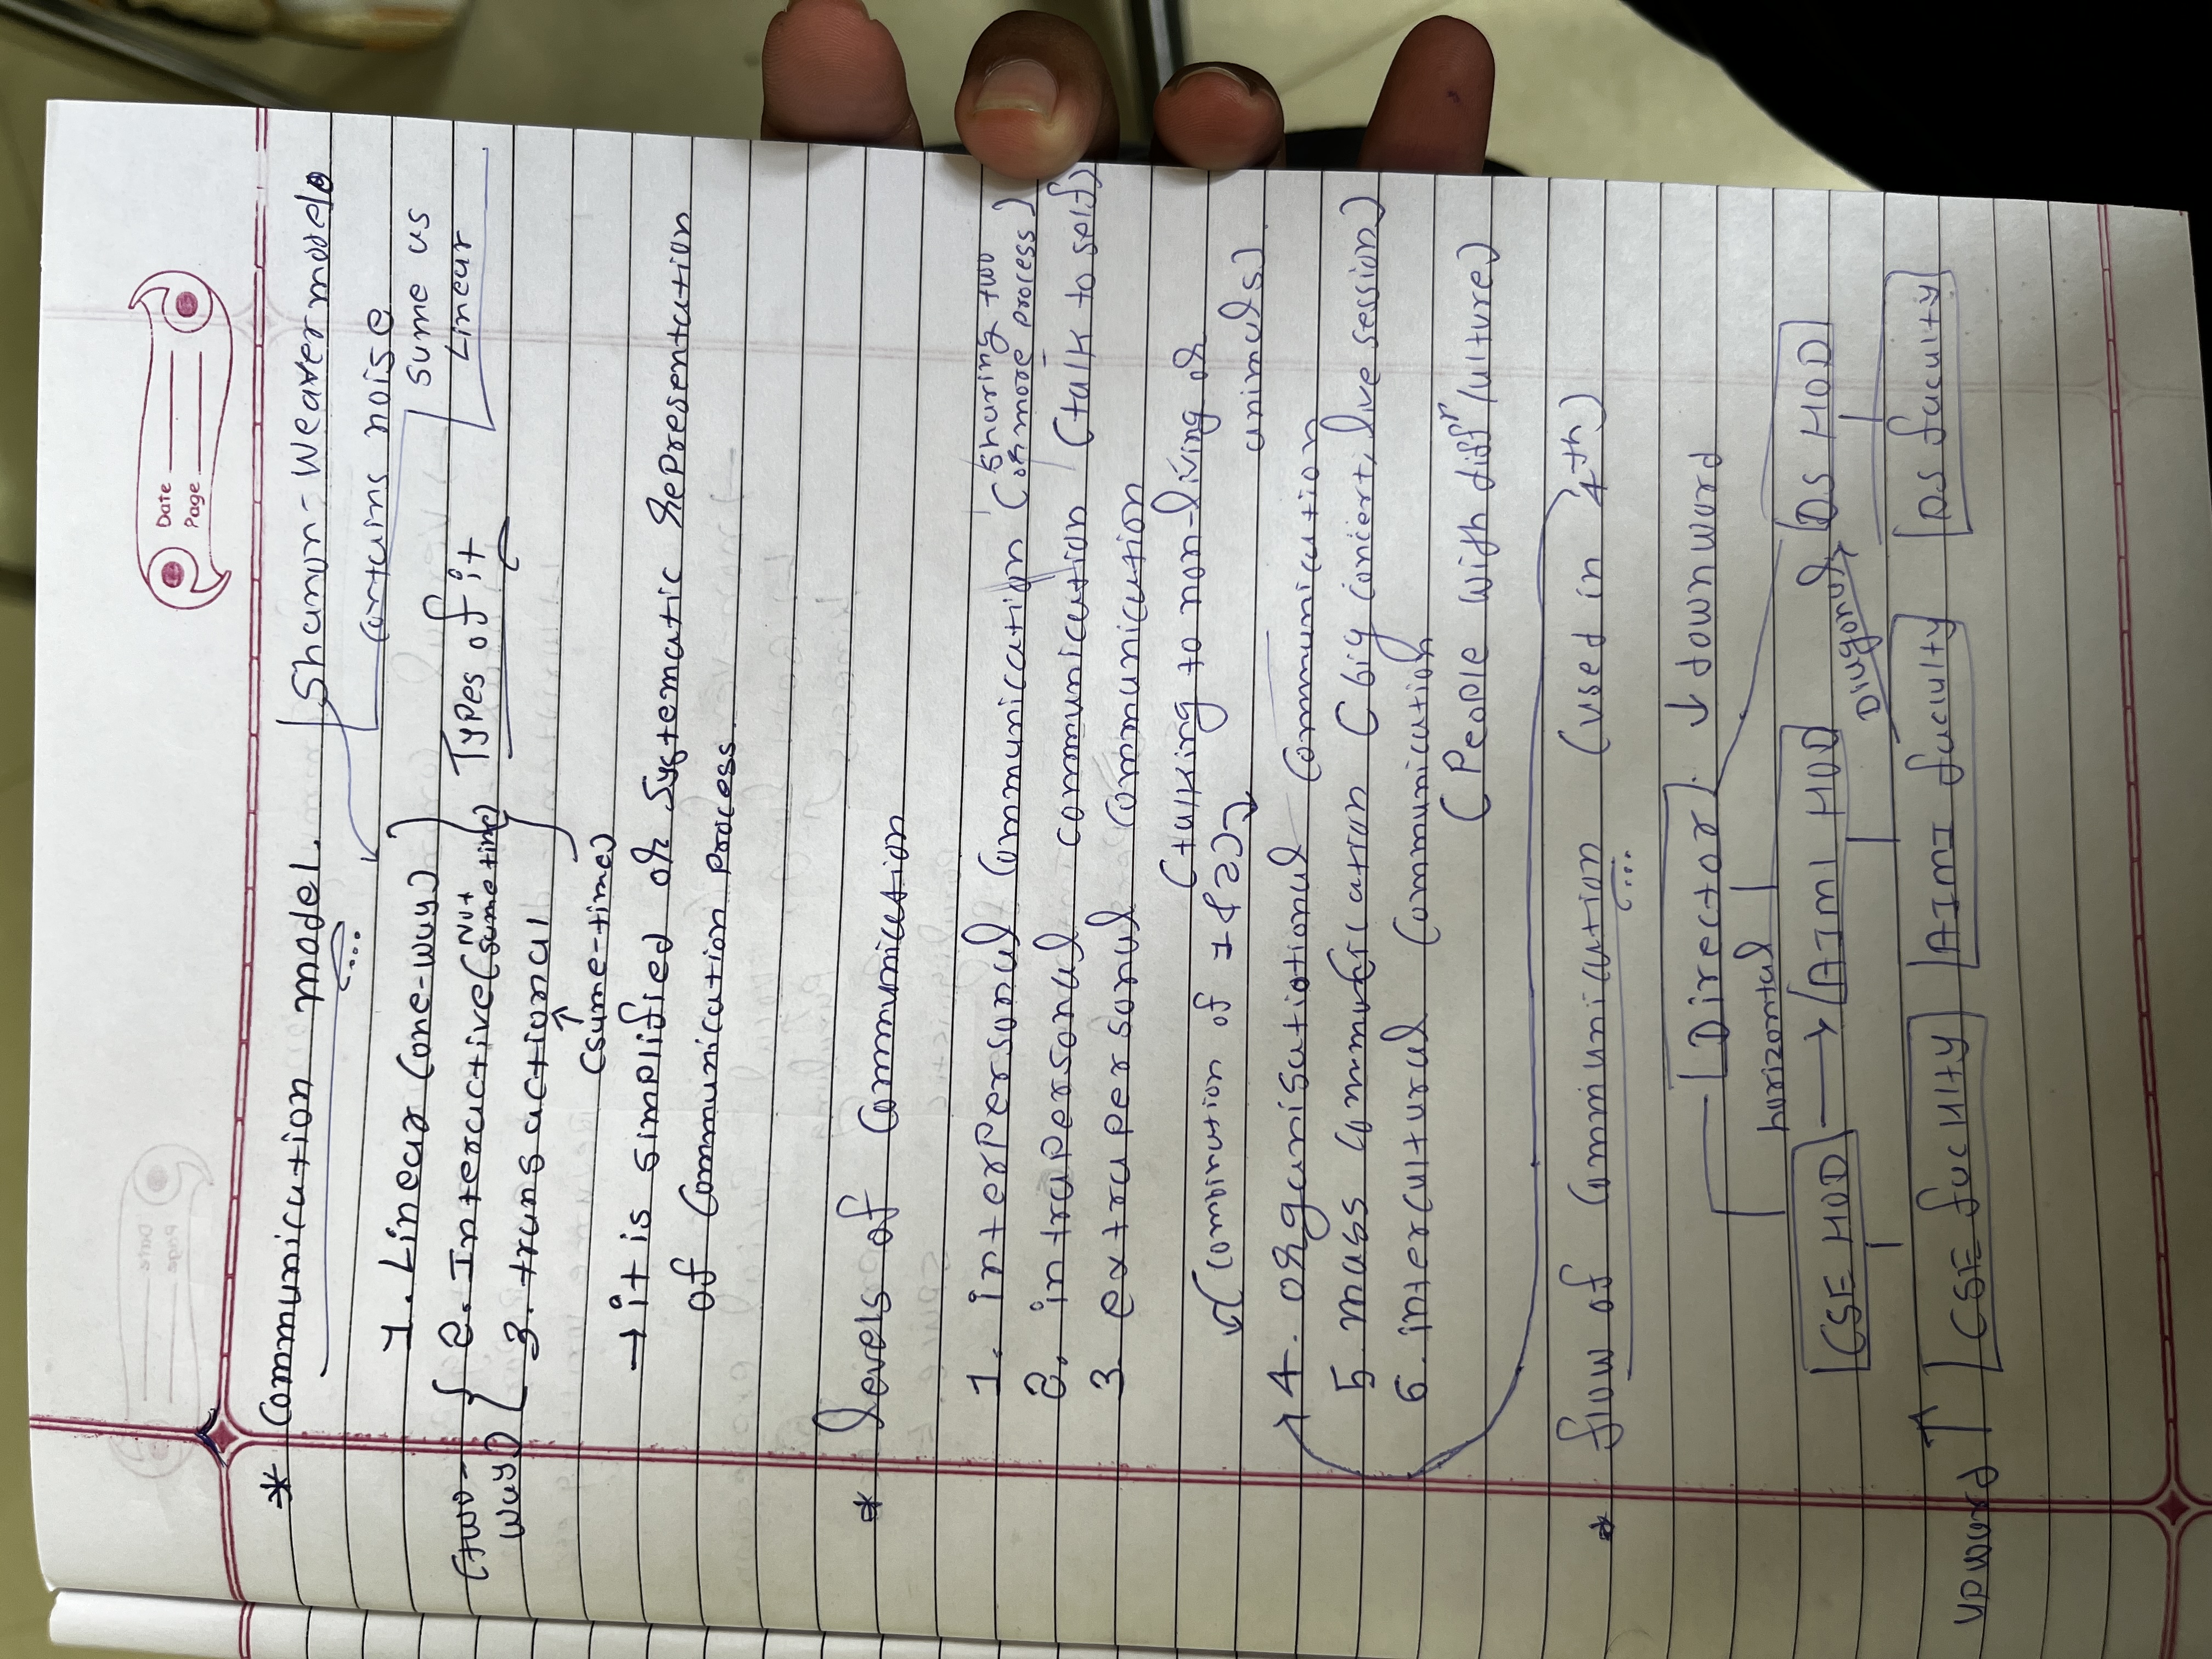 Date
Page
* Communication model.
Shanon-Weaver model
contains noise
same as
Linear
1. Linear (one-way)
2. Interactive (Not same time)
(two-way)
Types of it
3. transactional
(same-time)
→ it is simplified or systematic representation
of communication process.
* levels of communication
1. interpersonal communication (sharing two or more process)
2. intrapersonal communication (talk to self)
3 extrapersonal communication
(talking to non-living or
animals)
(combination of 1 & 2)
4. organisatiotional communication
5 mass communication (big concert, live session)
6. intercultural communication
(People with diffr culture)
* flow of communication (used in 4th)
Director ↓ downword
horizontal
CSE HOD → AIMl HOD DS HOD
Diagonal
upward ↑ CSE faculty AIMI faculty DS faculty